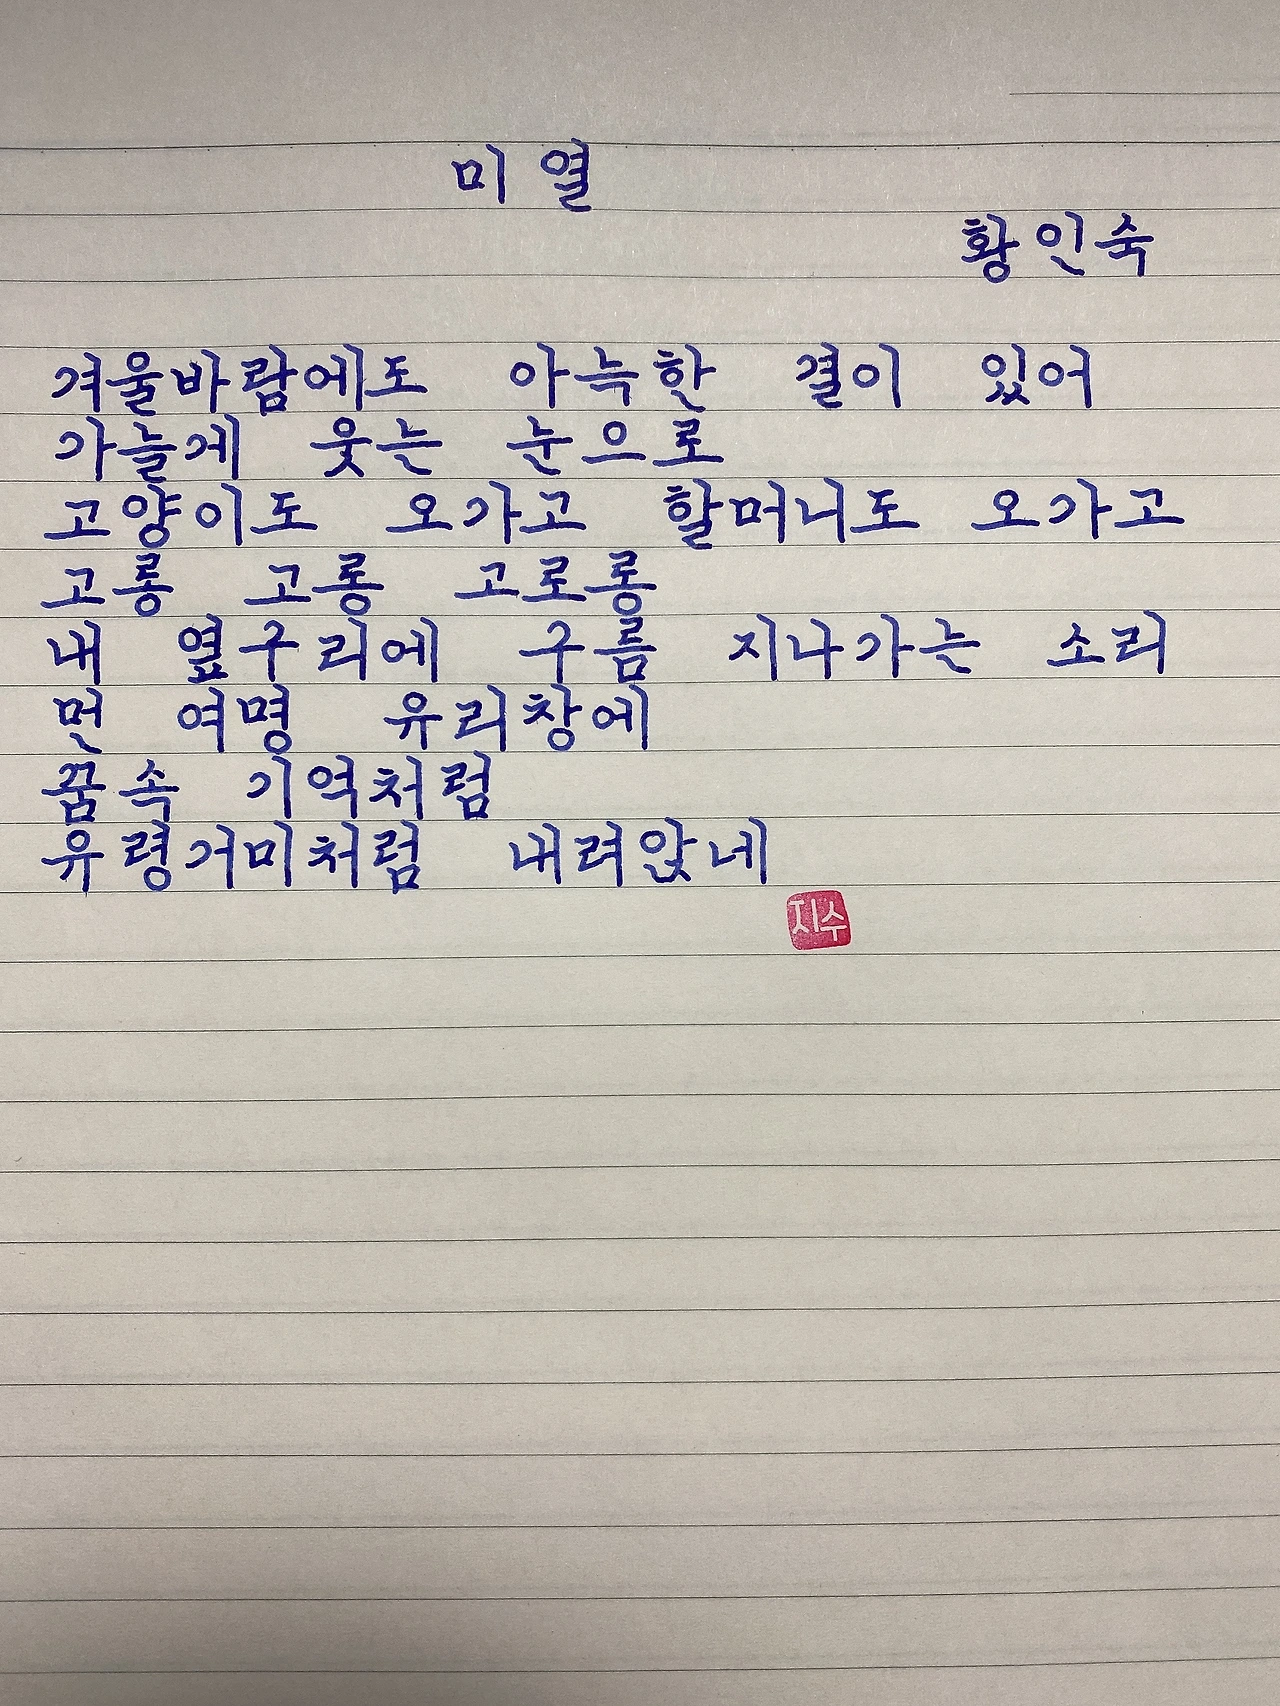 미열
황인숙
겨울바람에도 아늑한 결이 있어
가늘게 웃는 눈으로
고양이도 오가고 할머니도 오가고
고롱 고롱 고로롱
내 옆구리에 구름 지나가는 소리
먼 여명 유리창에
꿈속 기억처럼
유령거미처럼 내려앉네
지수